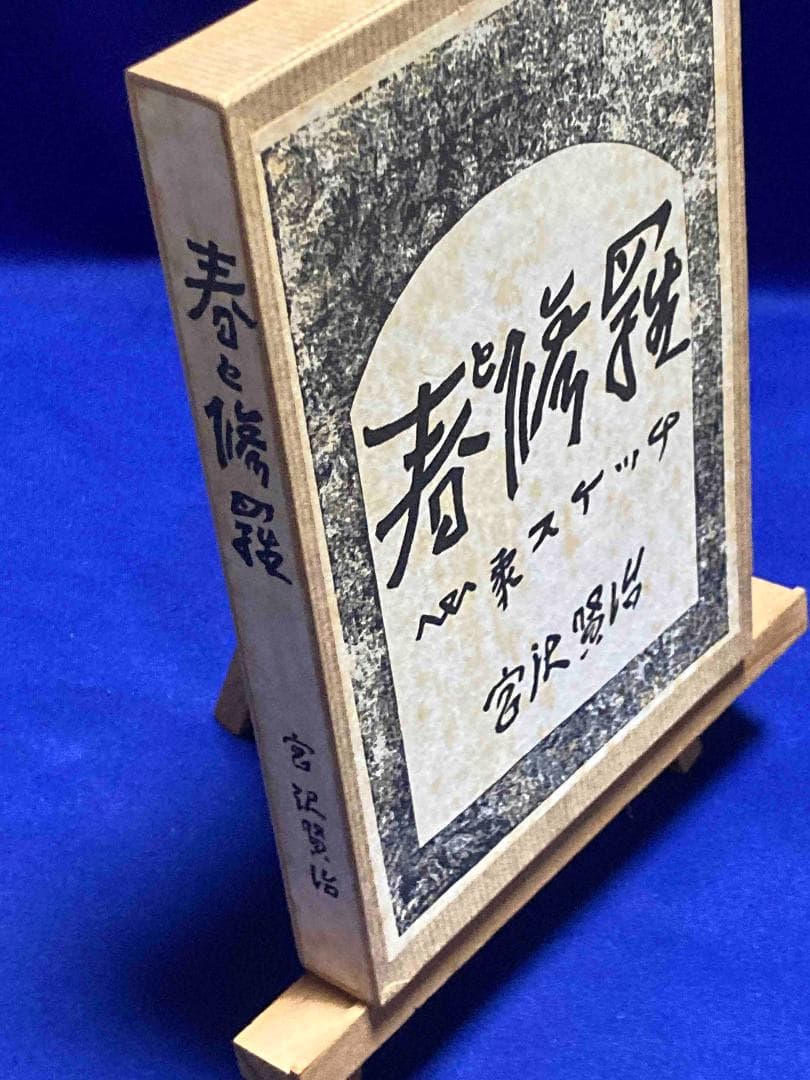 春と修羅
宮沢賢治
春と修羅
心象スケッチ
宮沢賢治